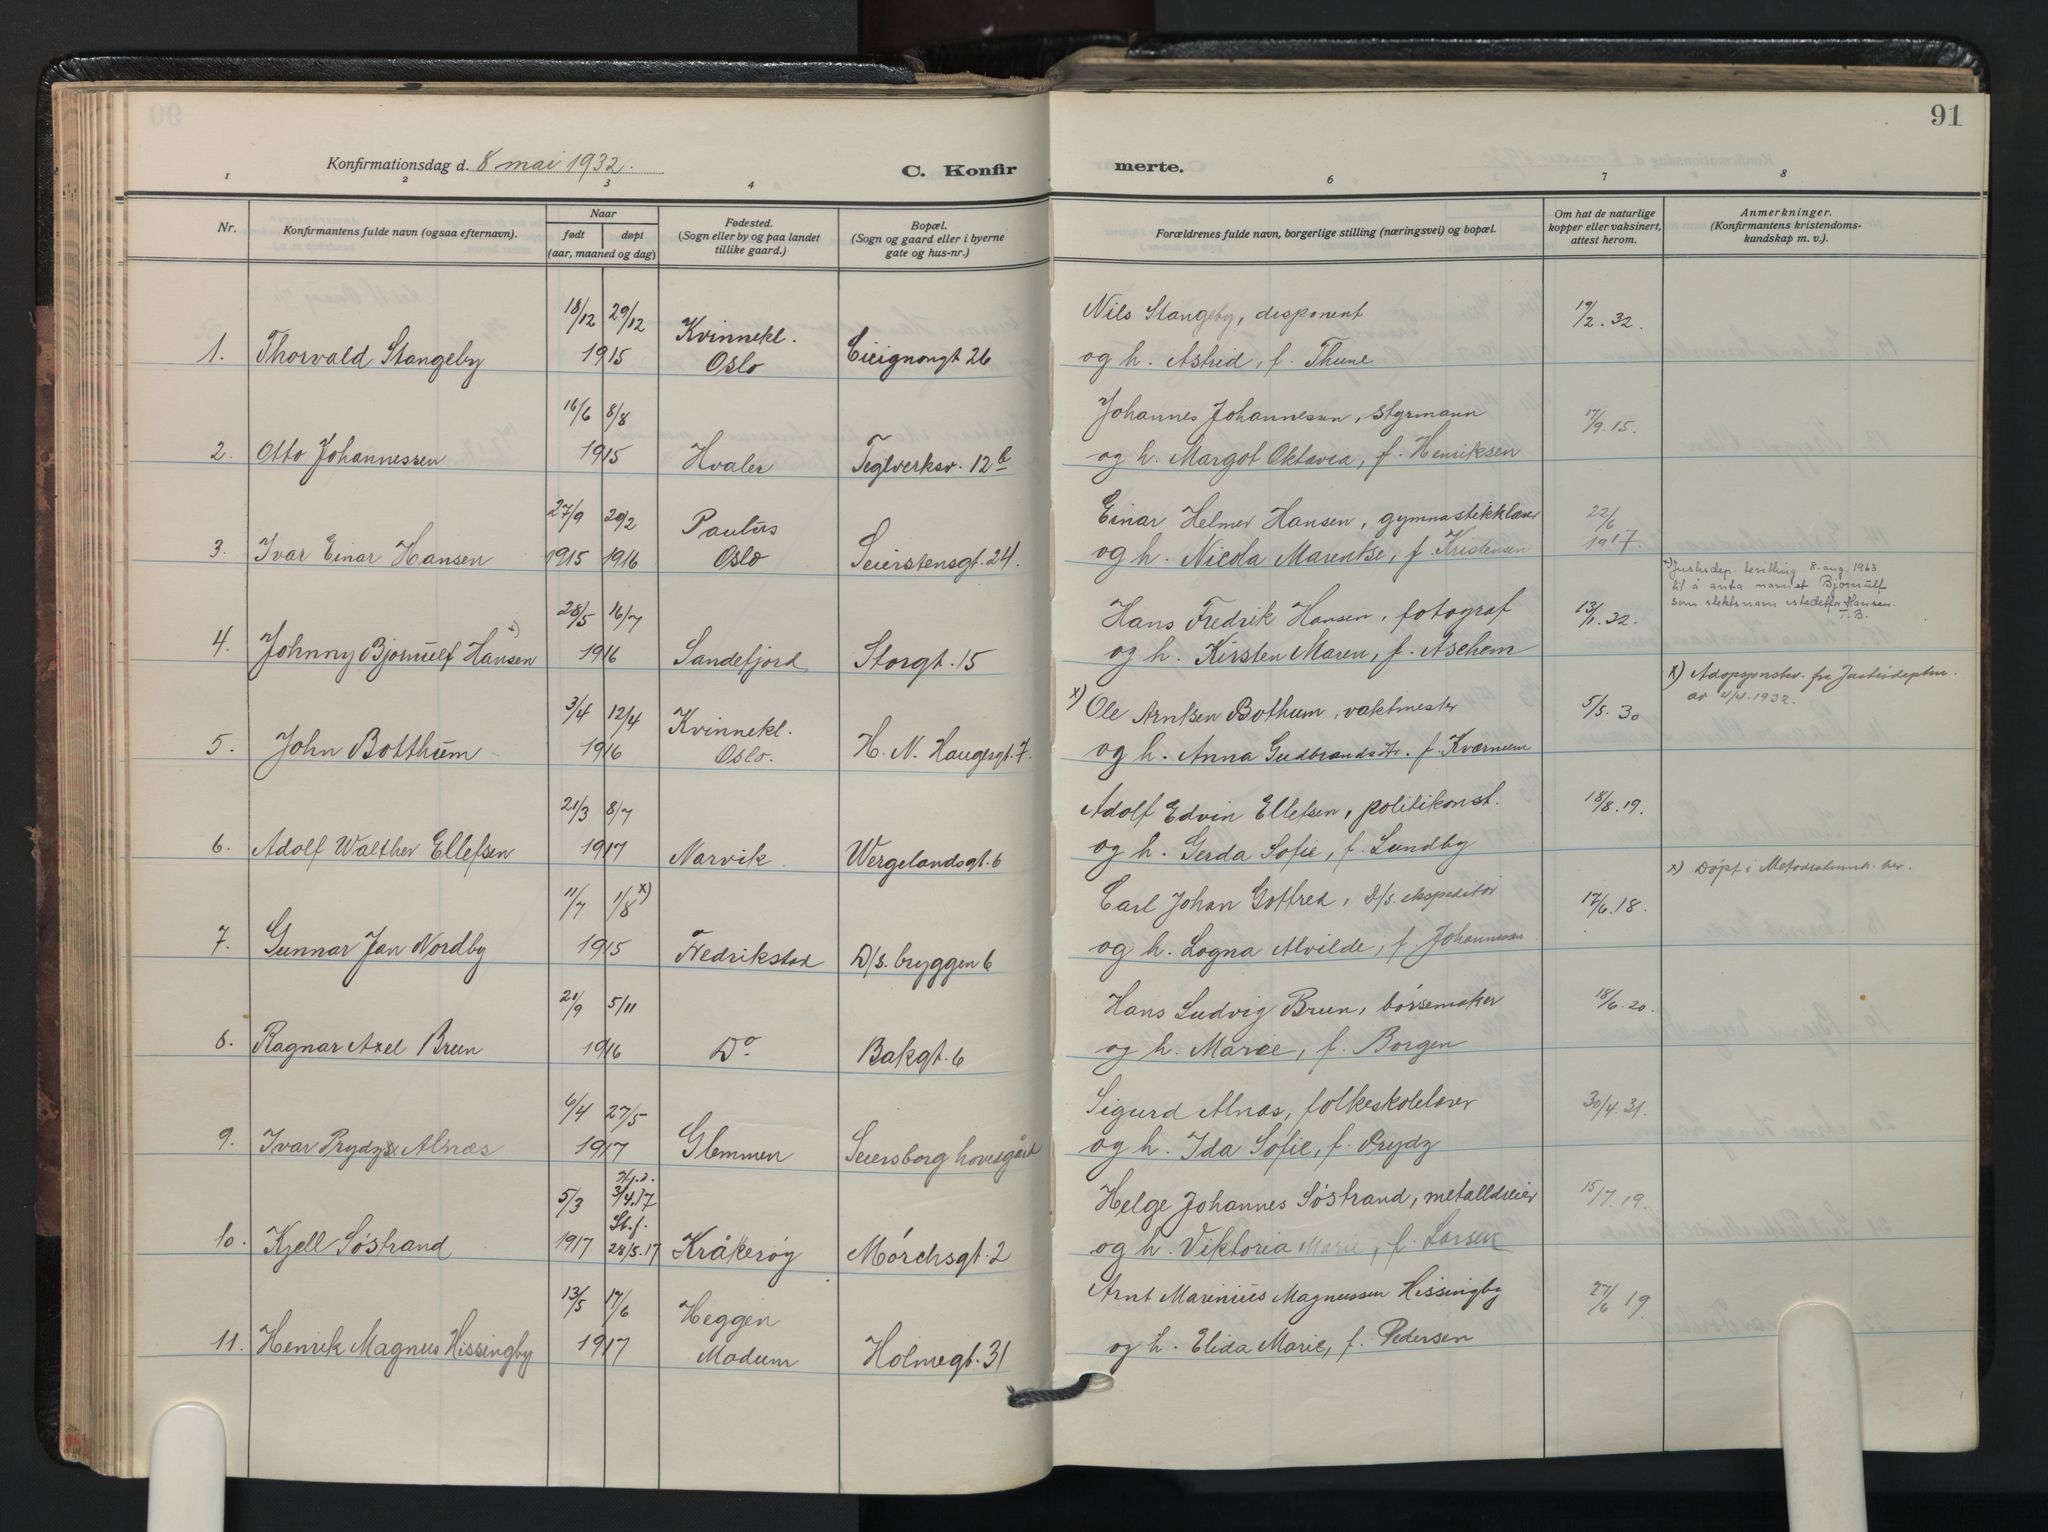 91
Konfirmationsdag d. 8 mai 1932.
C. Konfirmerte.
1 2 3 4 6 7 8
Nr.
Konfirmantens fulde navn (ogsaa efternavn).
Naar
født døpt
(aar, maaned og dag)
Fødested.
(Sogn eller by og paa landet
tillike gaard.)
Bopæl.
(Sogn og gaard eller i byerne
gate og hus-nr.)
Forældrenes fulde navn, borgerlige stilling (næringsvei) og bopæl.
Om hat de naturlige
kopper eller vaksinert,
attest herom.
Anmerkninger.
(Konfirmantens kristendoms-
kundskap m. v.).
18/12 29/12 Kvinnekl. Nils Stangeby, disponent 19/2.32.
1. Thorvald Stangeby 1915 Oslo Cicignongt 26 og h. Astrid, f. Thune
16/6 8/8 Johannes Johannessen, styrmann 17/9.15.
2. Otto Johannessen 1915 Hvaler Teglverksv. 12b og h. Margot Oktavia, f. Henriksen
27/9 20/2 Paulus Einar Helmer Hansen, gymnastikklærer 22/6
3. Ivar Einar Hansen 1915 1916 Oslo Seierstensgt. 24. og h. Nicola Marentse, f. Kristensen 1917.
x) Justisdep. bevilling 8. aug. 1963
til å anta navnet Bjørnulf
som slektsnavn istedetfor Hansen.
T.B.
28/5 16/7 Hans Fredrik Hansen, fotograf 13/1.32.
4. Johnny Bjørnulf Hansen x) 1916 Sandefjord Storgt. 15 og h. Kirsten Maren, f. Aschem
x) Adopsjonsbev. fra Justisdeptm.
av 4/4.1932.
3/4 12/4 Kvinnekl. x) Ole Arntsen Bothum, vaktmester 5/5.30
5. John Botthum 1916 Oslo. H. N. Haugesgt. 7. og h. Anna Gudbrandsdtr. f. Kværnum
21/3 8/7 Adolf Edvin Ellefsen, politikonst. 18/8.19.
6. Adolf Walther Ellefsen 1917 Narvik. Wergelandsgt. 6 og h. Gerda Sofie, f. Lundby
x) Døpt i Metodistmenh. her.
11/7 1/8 x) Carl Johan Gottfred, D/s. ekspeditør 17/6.18.
7. Gunnar Jan Nordby 1915 Fredrikstad D/s. bryggen 6 og h. Logna Alvilde, f. Johannessen
21/9 5/11 Hans Ludvig Brun, børsemaker 18/6.20.
8. Ragnar Axel Bruun 1916 Do Bakgt. 6 og h. Marie, f. Borgen
6/4 27/5 Sigurd Alnæs, folkeskolelærer 30/4.31.
9. Ivar Prydz Alnæs 1917 Glemmen Seiersborg hovedgård og h. Ida Sofie, f. Prydz
5/3 Hj.d. 3/4.17 Helge Johannes Søstrand, metalldreier 15/7.19.
St.f.
10. Kjell Søstrand 1917 28/5.17 Kråkerøy Mørchsgt. 2 og h. Viktoria Marie, f. Larsen
13/5 17/6 Heggen Arnt Marinius Magnussen Hissingby 27/6 19
11. Henrik Magnus Hissingby 1917 Modum Holmegt. 31 og h. Elida Marie, f. Pedersen